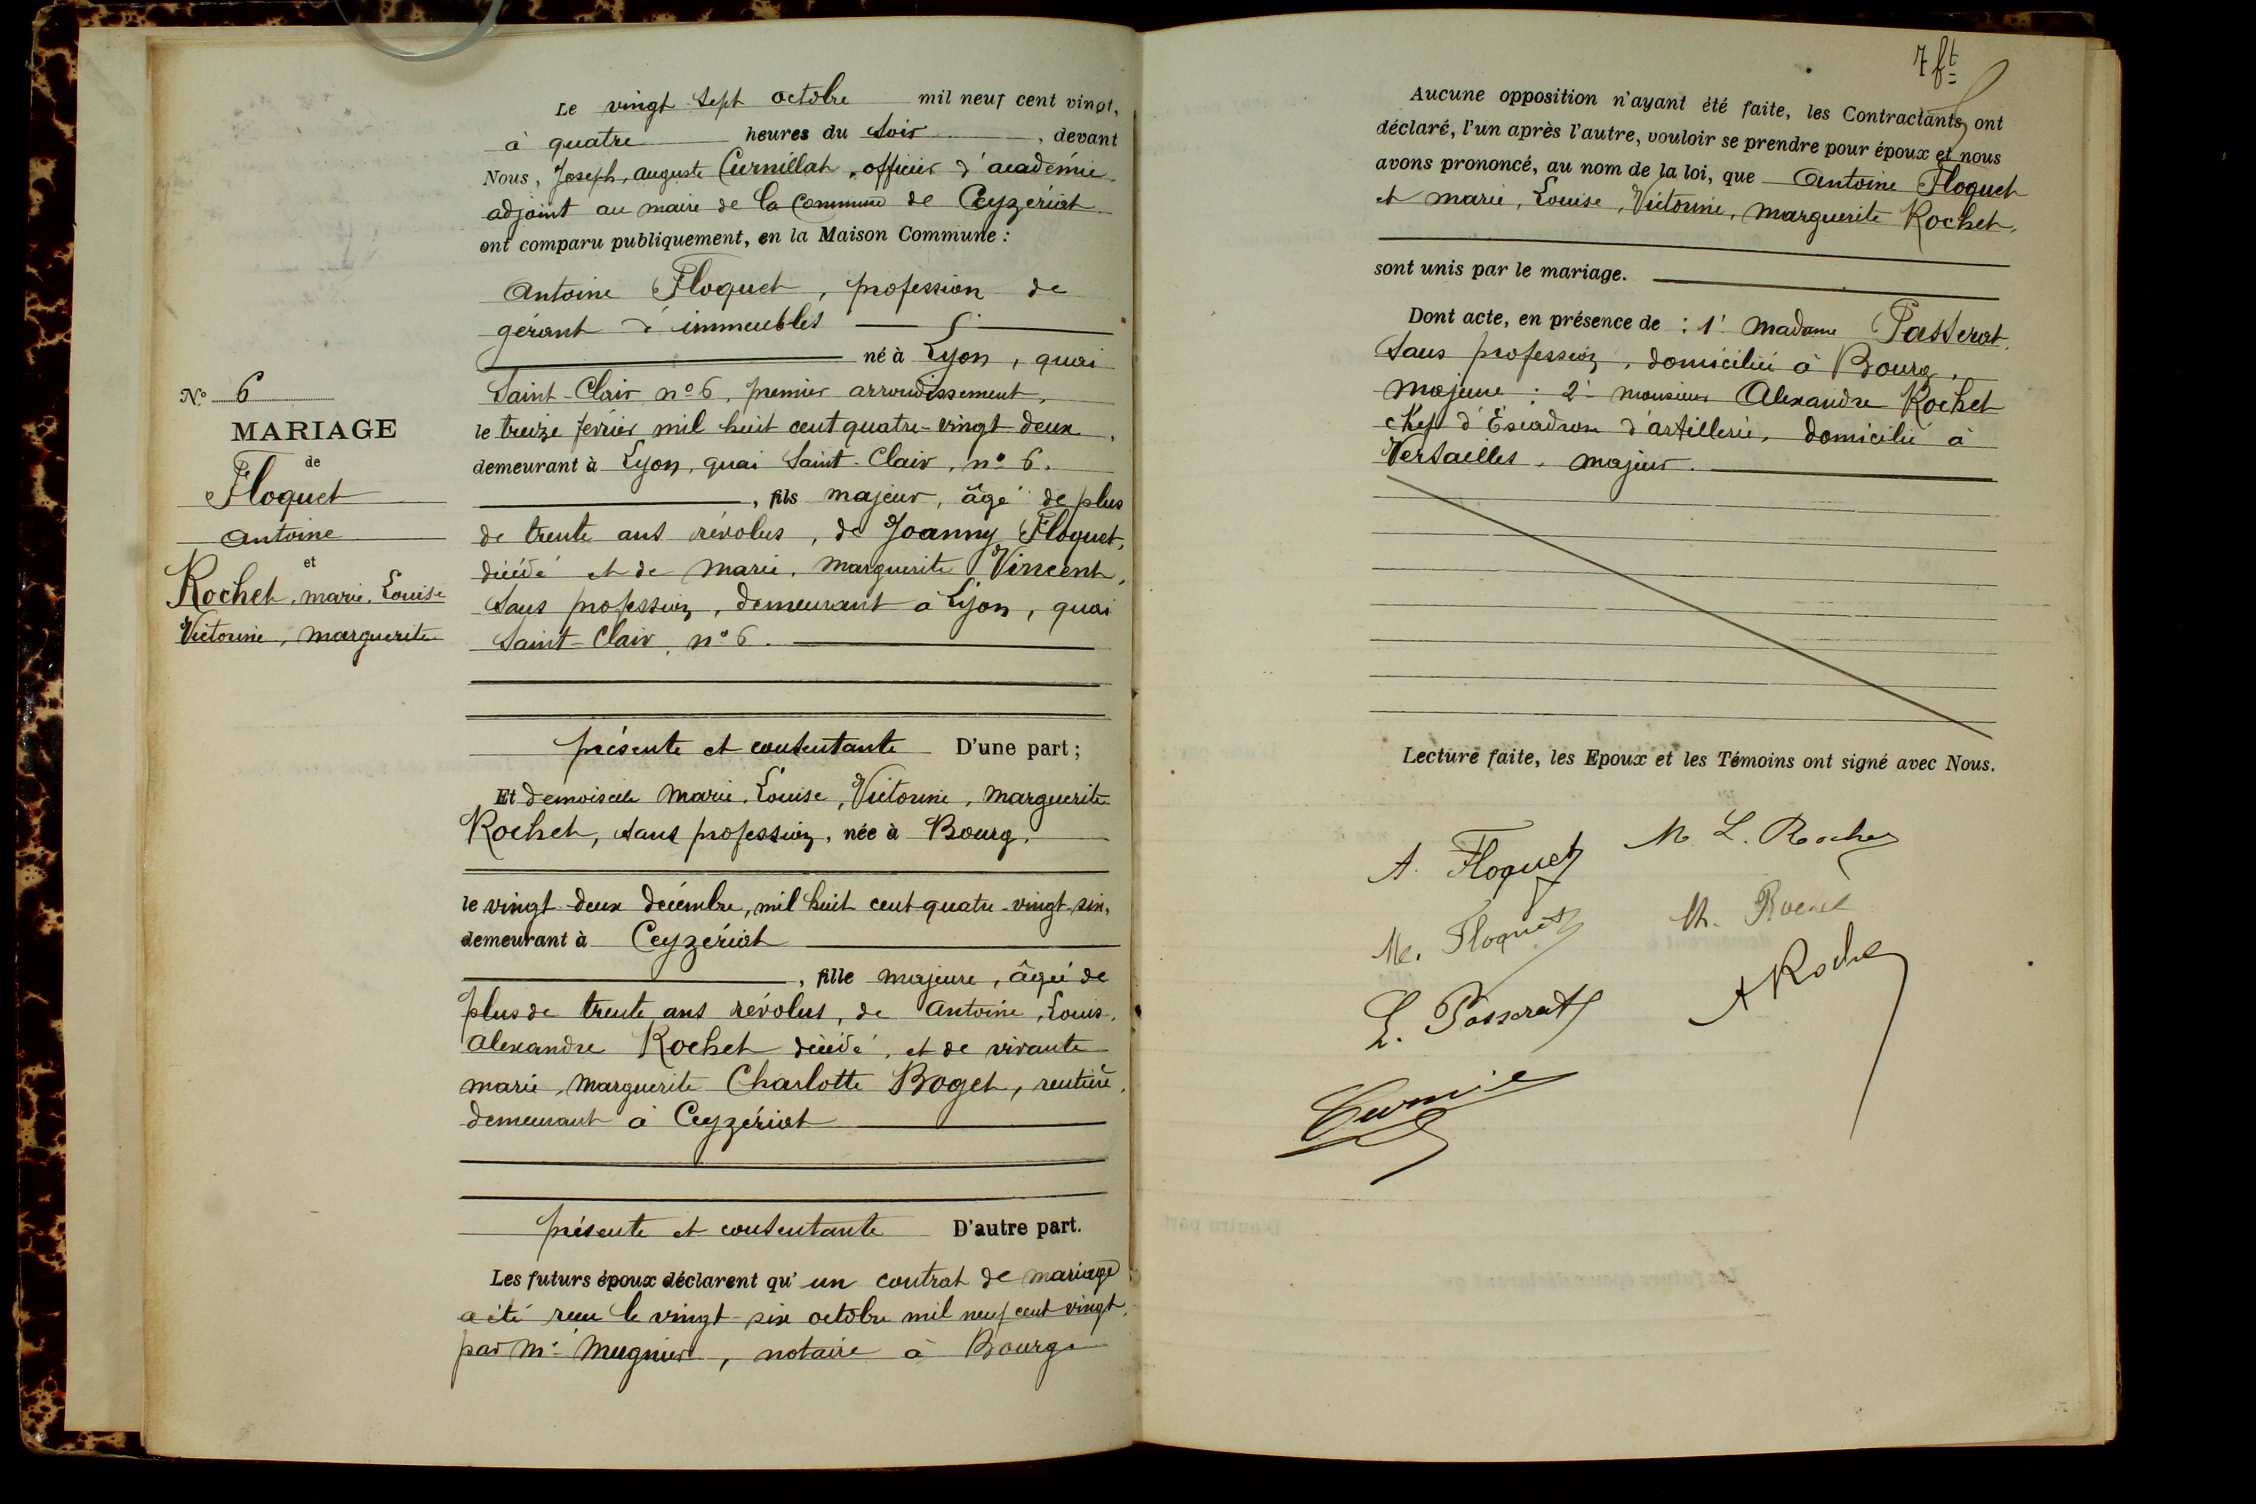 Le vingt sept octobre mil neuf cent vingt,
à quatre heures du soir, devant
Nous, Joseph, auguste Curnillat, officier d'académie
adjoint au maire de la Commune de Ceyzériat
ont comparu publiquement, en la Maison Commune :
Antoine Floquet, profession de
gérant d'immeubles
né à Lyon, quai
Saint-Clair n° 6, premier arrondissement,
le treize février mil huit cent quatre-vingt deux,
demeurant à Lyon, quai Saint-Clair, n° 6.
, fils majeur, âgé de plus
de trente ans révolus, de Joanny Floquet,
décédé et de Marie, Marguerite Vincent,
sans profession, demeurant à Lyon, quai
Saint-Clair, n° 6.
présente et consentante D'une part ;
Et demoiselle Marie, Louise, Victorine, Marguerite
Rochet, sans profession, née à Bourg,
le vingt-deux décembre, mil huit cent quatre-vingt-six,
demeurant à Ceyzériat
, fille majeure, âgée de
plus de trente ans révolus, de Antoine, Louis,
Alexandre Rochet décédé, et de vivante
Marie, Marguerite Charlotte Boget, rentière,
demeurant à Ceyzériat
présente et consentante D'autre part.
Les futurs époux déclarent qu'un contrat de mariage
a été reçu le vingt-six octobre mil neuf cent vingt,
par Me Mugnier, notaire à Bourg.
N° 6
MARIAGE
de
Floquet
Antoine
et
Rochet, Marie, Louise
Victorine, Marguerite
7 ft
Aucune opposition n'ayant été faite, les Contractants ont
déclaré, l'un après l'autre, vouloir se prendre pour époux et nous
avons prononcé, au nom de la loi, que Antoine Floquet
et Marie, Louise, Victorine, Marguerite Rochet,
sont unis par le mariage.
Dont acte, en présence de : 1° Madame Passerat,
sans profession, domiciliée à Bourg,
majeure ; 2° Monsieur Alexandre Rochet
chef d'Escadron d'artillerie, domicilié à
Versailles, majeur.
Lecture faite, les Epoux et les Témoins ont signé avec Nous.
A. Floquet M. L. Rochet
M. Floquet M. Rochet
L. Passerat A Rochet